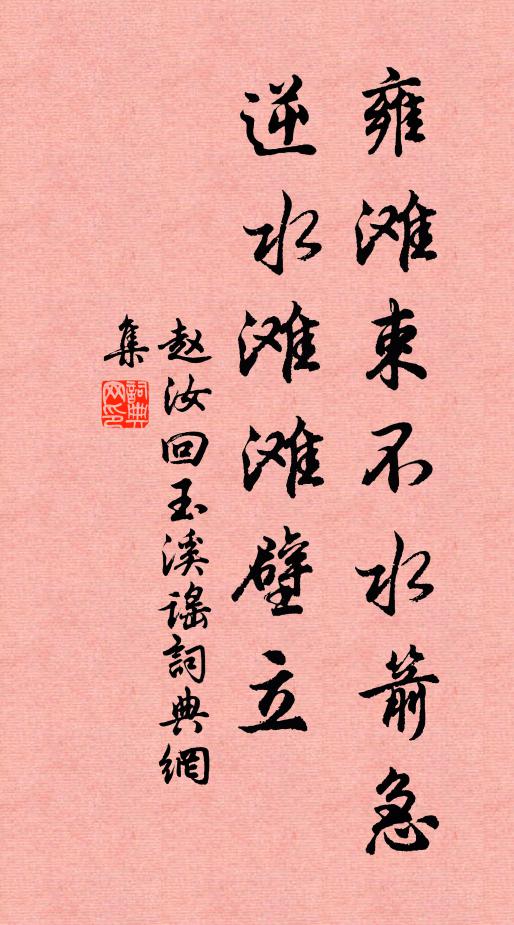 雍滩束不水箭急
逆水滩滩壁立
赵汝回玉溪谣詞典網
集
詞典网印